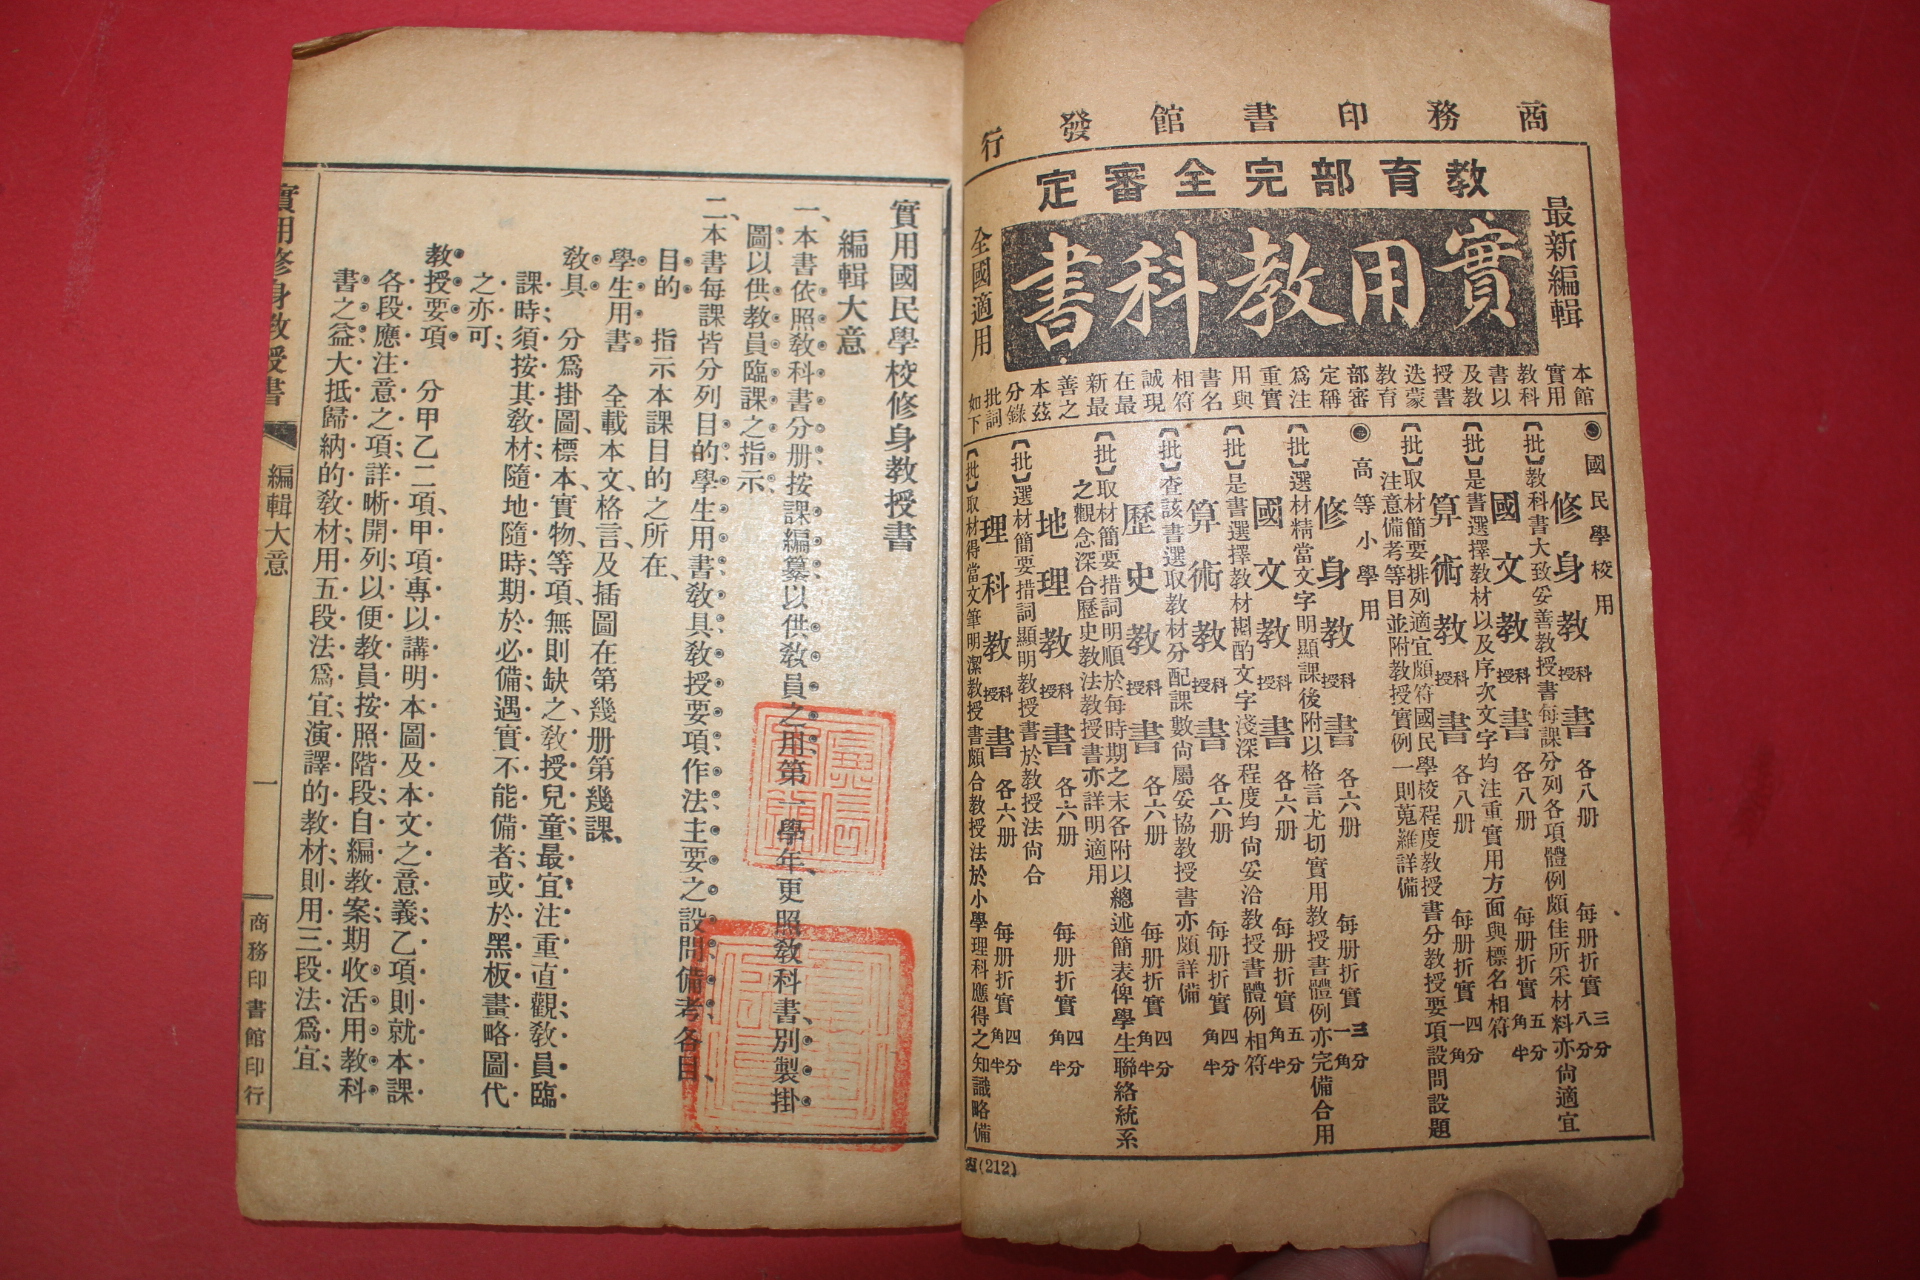 商務印書館發行
教育部完全審定
最新編輯
實用教科書
全國適用
本館
實用
教科
書以
及教
授書
迭蒙
教育
部審
定稱
爲注
重實
用與
書名
相符
誠現
在最
新最
善之
本茲
分錄
批詞
如下
◉國民學校用
修身教科授書 各八册 每册折實三分八分
【批】教科書大致妥善教授書每課分列各項體例頗佳所采材料亦尙適宜
國文教科授書 各八册 每册折實五分角半
【批】是書選擇教材以及序次文字均注重實用方面與標名相符
算術教科授書 各八册 每册折實四分一角
【批】取材簡要排列適宜頗符國民學校程度教授書分教授要項設問設題
注意備考等目並附教授實例一則蒐羅詳備
◉高等小學用
修身教科授書 各六册 每册折實三分一角
【批】選材精當文字明顯課後附以格言尤切實用教授書體例亦完備合用
國文教科授書 各六册 每册折實五分角半
【批】是書選擇教材斟酌文字淺深程度均尙妥洽教授書體例相符
算術教科授書 各六册 每册折實四分角半
【批】查該書選取教材分配課數尙屬妥協教授書亦頗詳備
歷史教科授書 各六册 每册折實四分角半
【批】取材簡要措詞明順於每時期之末各附以總述簡表俾學生聯絡統系
之觀念深合歷史教法教授書亦詳明適用
地理教科授書 各六册 每册折實四分角半
【批】選材簡要措詞顯明教授書於教授法尙合
理科教科授書 各六册 每册折實四分角半
【批】取材得當文筆明潔教授書頗合教授法於小學理科應得之知識略備
(212)
實用國民學校修身教授書
編輯大意
一、本書依照教科書分册按課編纂以供教員之用、第一學年、更照教科書、別製掛
圖以供教員臨課之指示、
二、本書每課皆分列目的學生用書教具教授要項作法主要之設問備考各目、
目的 指示本課目的之所在、
學生用書 全載本文、格言、及插圖在第幾册第幾課、
教具 分爲掛圖、標本、實物、等項、無則缺之、教授兒童、最宜注重直觀、教員臨
課時、須按其教材、隨地隨時、期於必備、遇實不能備者、或於黑板畫略圖代
之亦可、
教授要項 分甲乙二項、甲項專以講明本圖及本文之意義、乙項則就本課
各段應注意之項、詳晰開列、以便教員按照階段自編教案、期收活用教科
書之益、大抵歸納的教材、用五段法爲宜、演譯的教材、則用三段法爲宜、
實用修身教授書 編輯大意 一 商務印書館印行